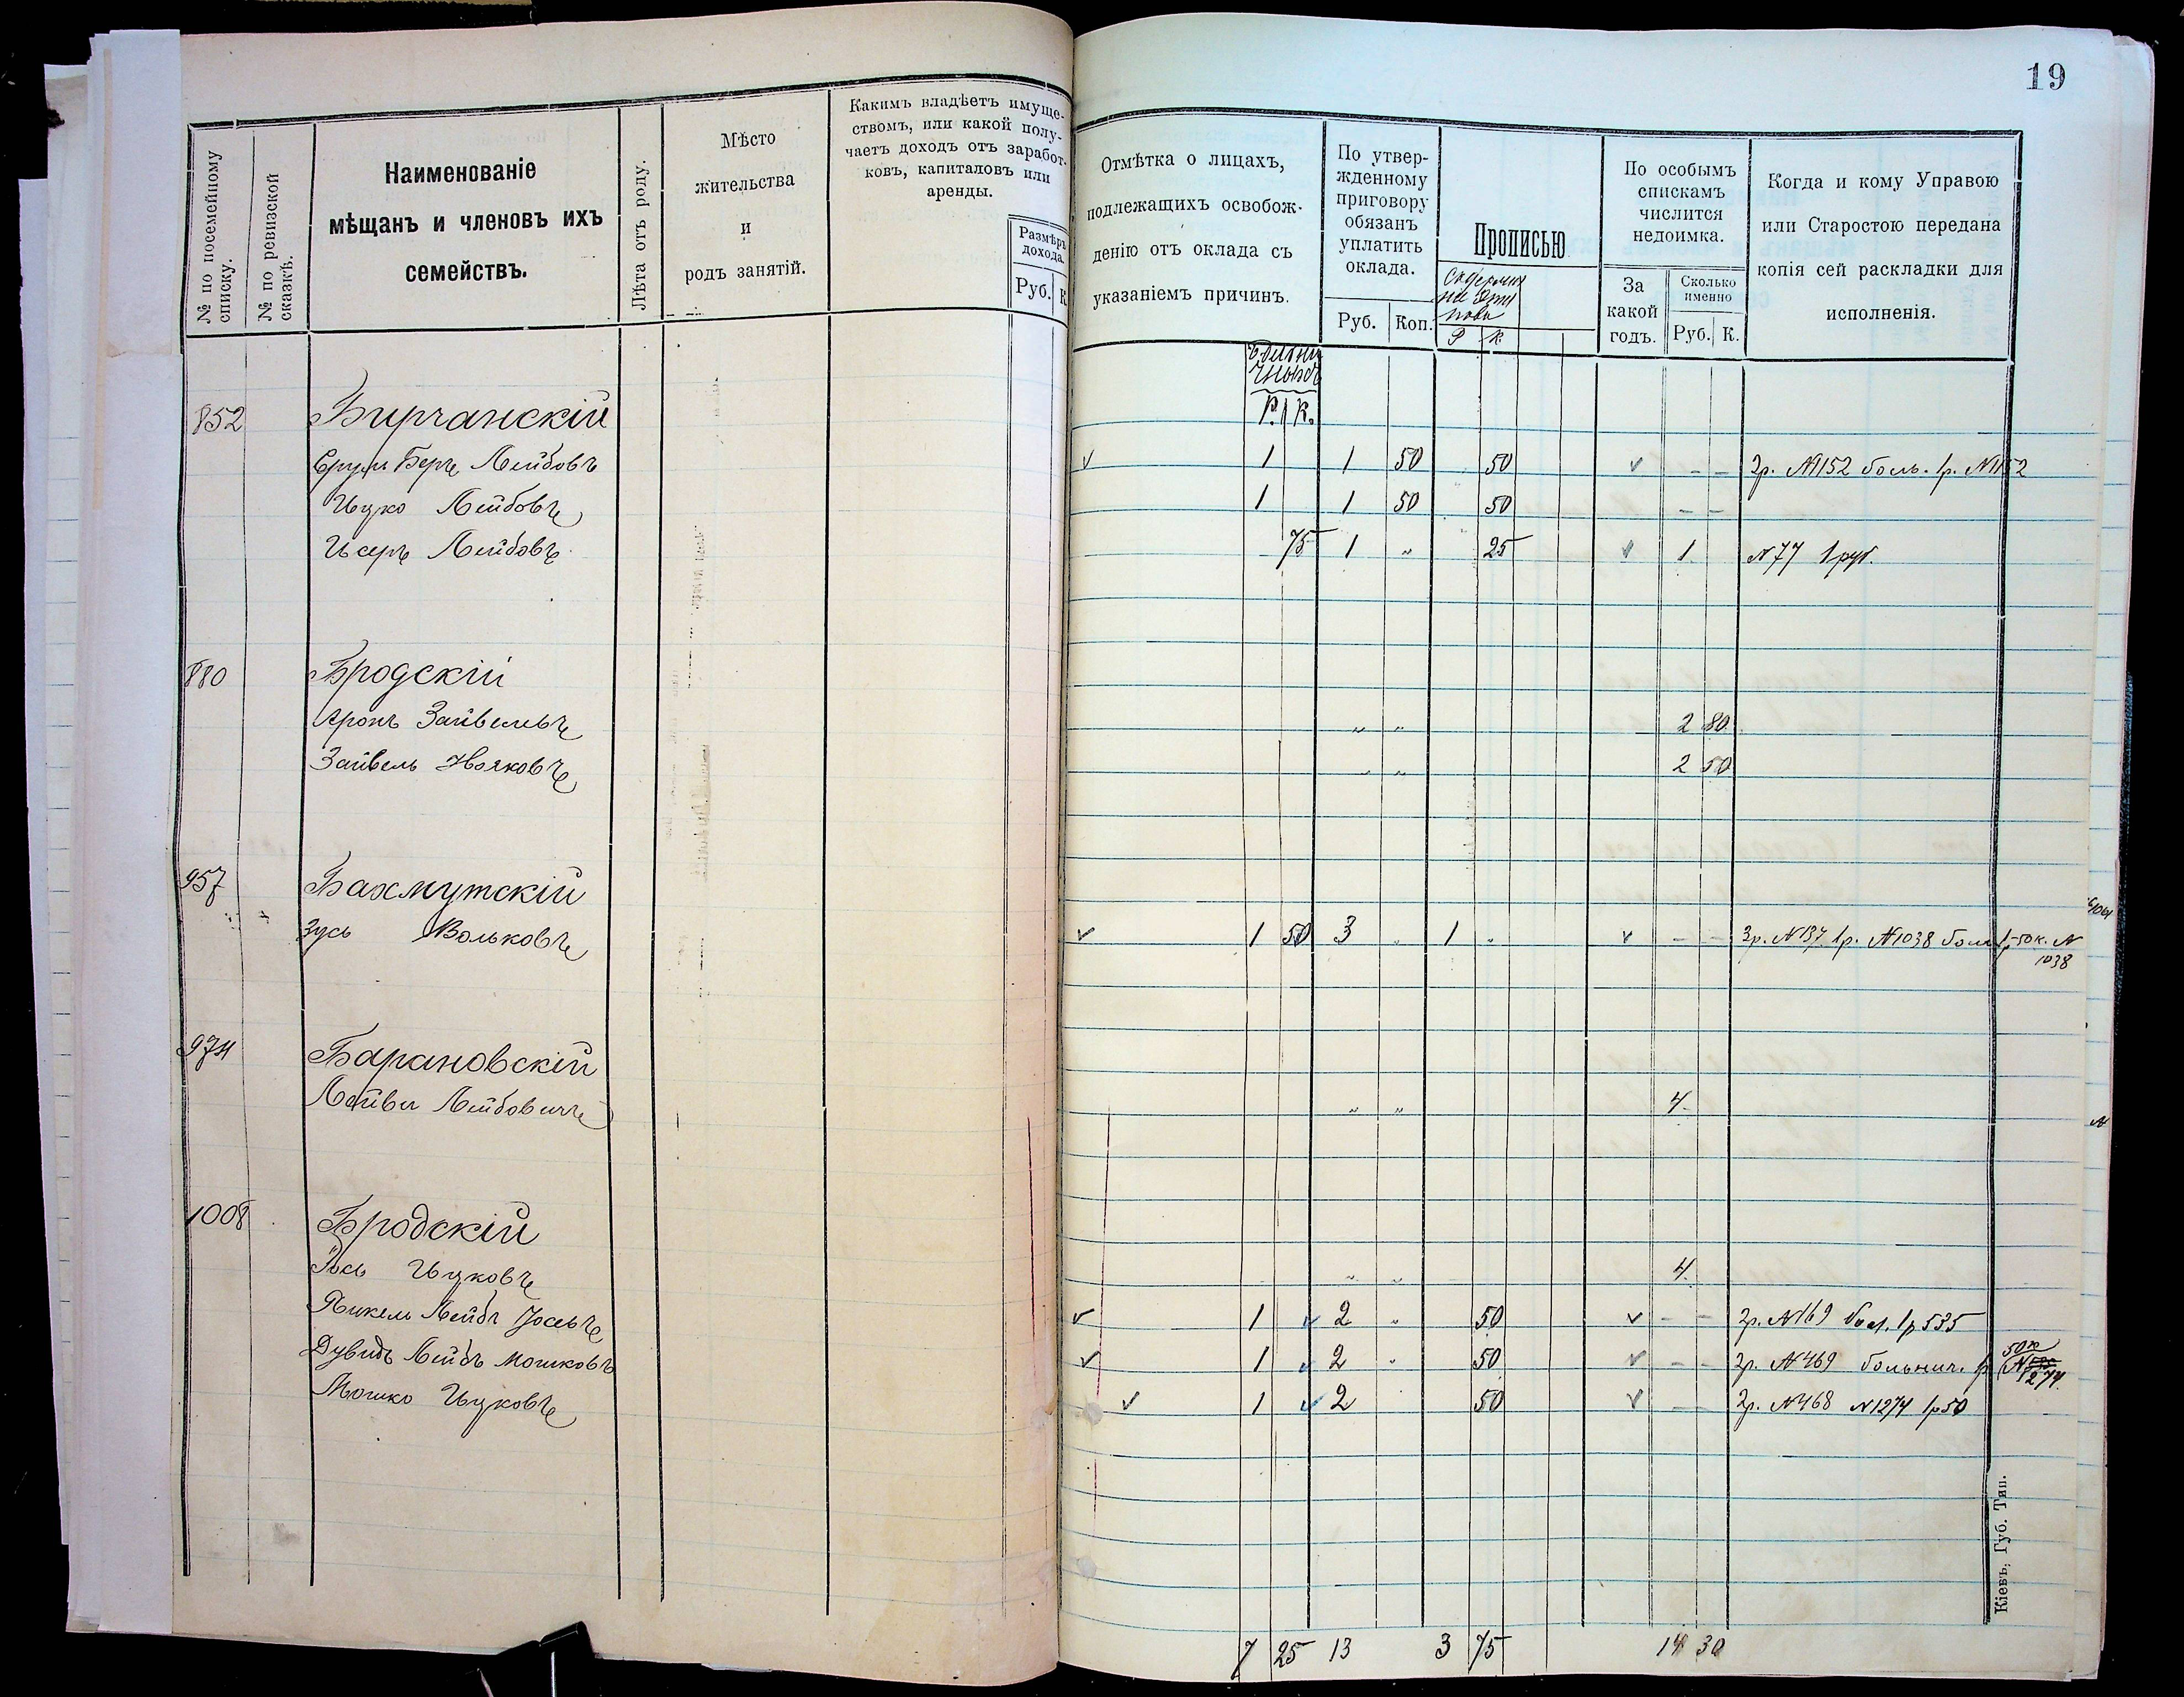 19
№ по посемейному списку.
№ по ревизской сказкѣ.
Наименованіе
мѣщанъ и членовъ ихъ
семействъ.
Лѣта отъ роду.
Мѣсто
жительства
и
родъ занятій.
Какимъ владѣетъ имуще-
ствомъ, или какой полу-
чаетъ доходъ отъ заработ-
ковъ, капиталовъ или
аренды.
Размѣръ
дохода.
Руб. К
Отмѣтка о лицахъ,
подлежащихъ освобож-
денію отъ оклада съ
указаніемъ причинъ.
По утвер-
жденному
приговору
обязанъ
уплатить
оклада.
Руб. Коп.
Прописью
Р К
По особымъ
спискамъ
числится
недоимка.
За
какой
годъ.
Сколько
именно
Руб. К.
Когда и кому Управою
или Старостою передана
копія сей раскладки для
исполненія.
Р. К.
852 Бирчанскій
Срул Беръ Лейбовъ 1 1 50 50 - - 3р. №1152 боль. 1р. №1152
Ицко Лейбовъ 1 1 50 50 - -
Исеръ Лейбовъ 75 1 „ 25 1 №77 1 руб.
880 Бродскій
Аронъ Зайвелевъ „ „ 2 80
Зайвель Іояковъ „ „ 2 50
957 Бахмутскій
Зусь Вольковъ 1 50 3 „ 1 „ - - 3р. №137 1р. №1038 1р 50к. №
1038
974 Барановскій
Лейви Лейбовичъ „ „ 4
1008 Бродскій
Іось Ицковъ „ „ 4.
Янкель Лейбъ Іосевъ 1 2 „ 50 - - 2р. №169 бол. 1р 535
Дувидъ Лейбъ Мошковъ 1 2 „ 50 - - 2р. №469 больнич. 1р 50к
№ 1274.
Мошко Ицковъ 1 2 50 - - 2р. №468 №1274 1р50
7 25 13 3 75 14 30
Кіевъ, Губ. Тип.